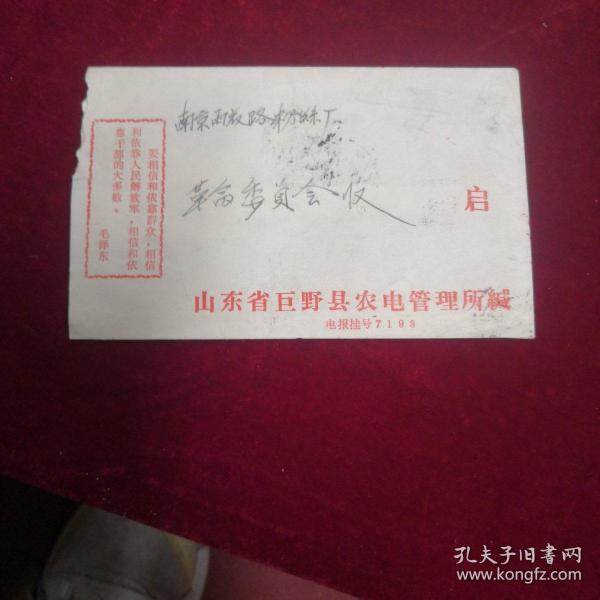 南京雨花路
革命委员会收
启
要相信和依靠群众，相信
和依靠人民解放军，相信和依
靠干部的大多数。
毛泽东
山东省巨野县农电管理所缄
电报挂号7198
孔夫子旧书网
www.kongfz.com